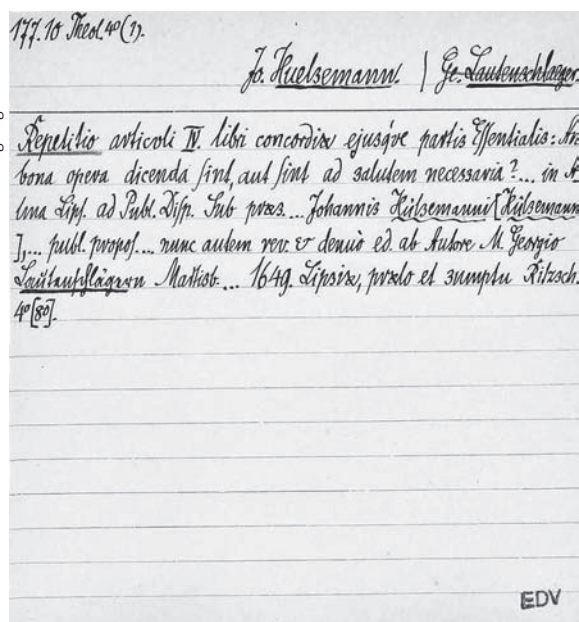 177.10 Theol. 4° (1).
Jo. Huelsemann. | Ge. Lautenschlaeger.
Repetitio articoli IV. libri concordiæ ejusqve partis Essentialis: An
bona opera dicenda sint, aut sint ad salutem necessaria? ... in A
lma Lips. ad Publ. Disp. Sub præs. ... Johannis Hülsemanni [Hülsemann
], ... publ. propos. ... nunc autem rev. & denuò ed. ab Autore M. Georgio
Lautenschlägern Ratisb. ... 1649. Lipsiæ, prælo et sumptu Ritzsch.
4° [8°].
EDV